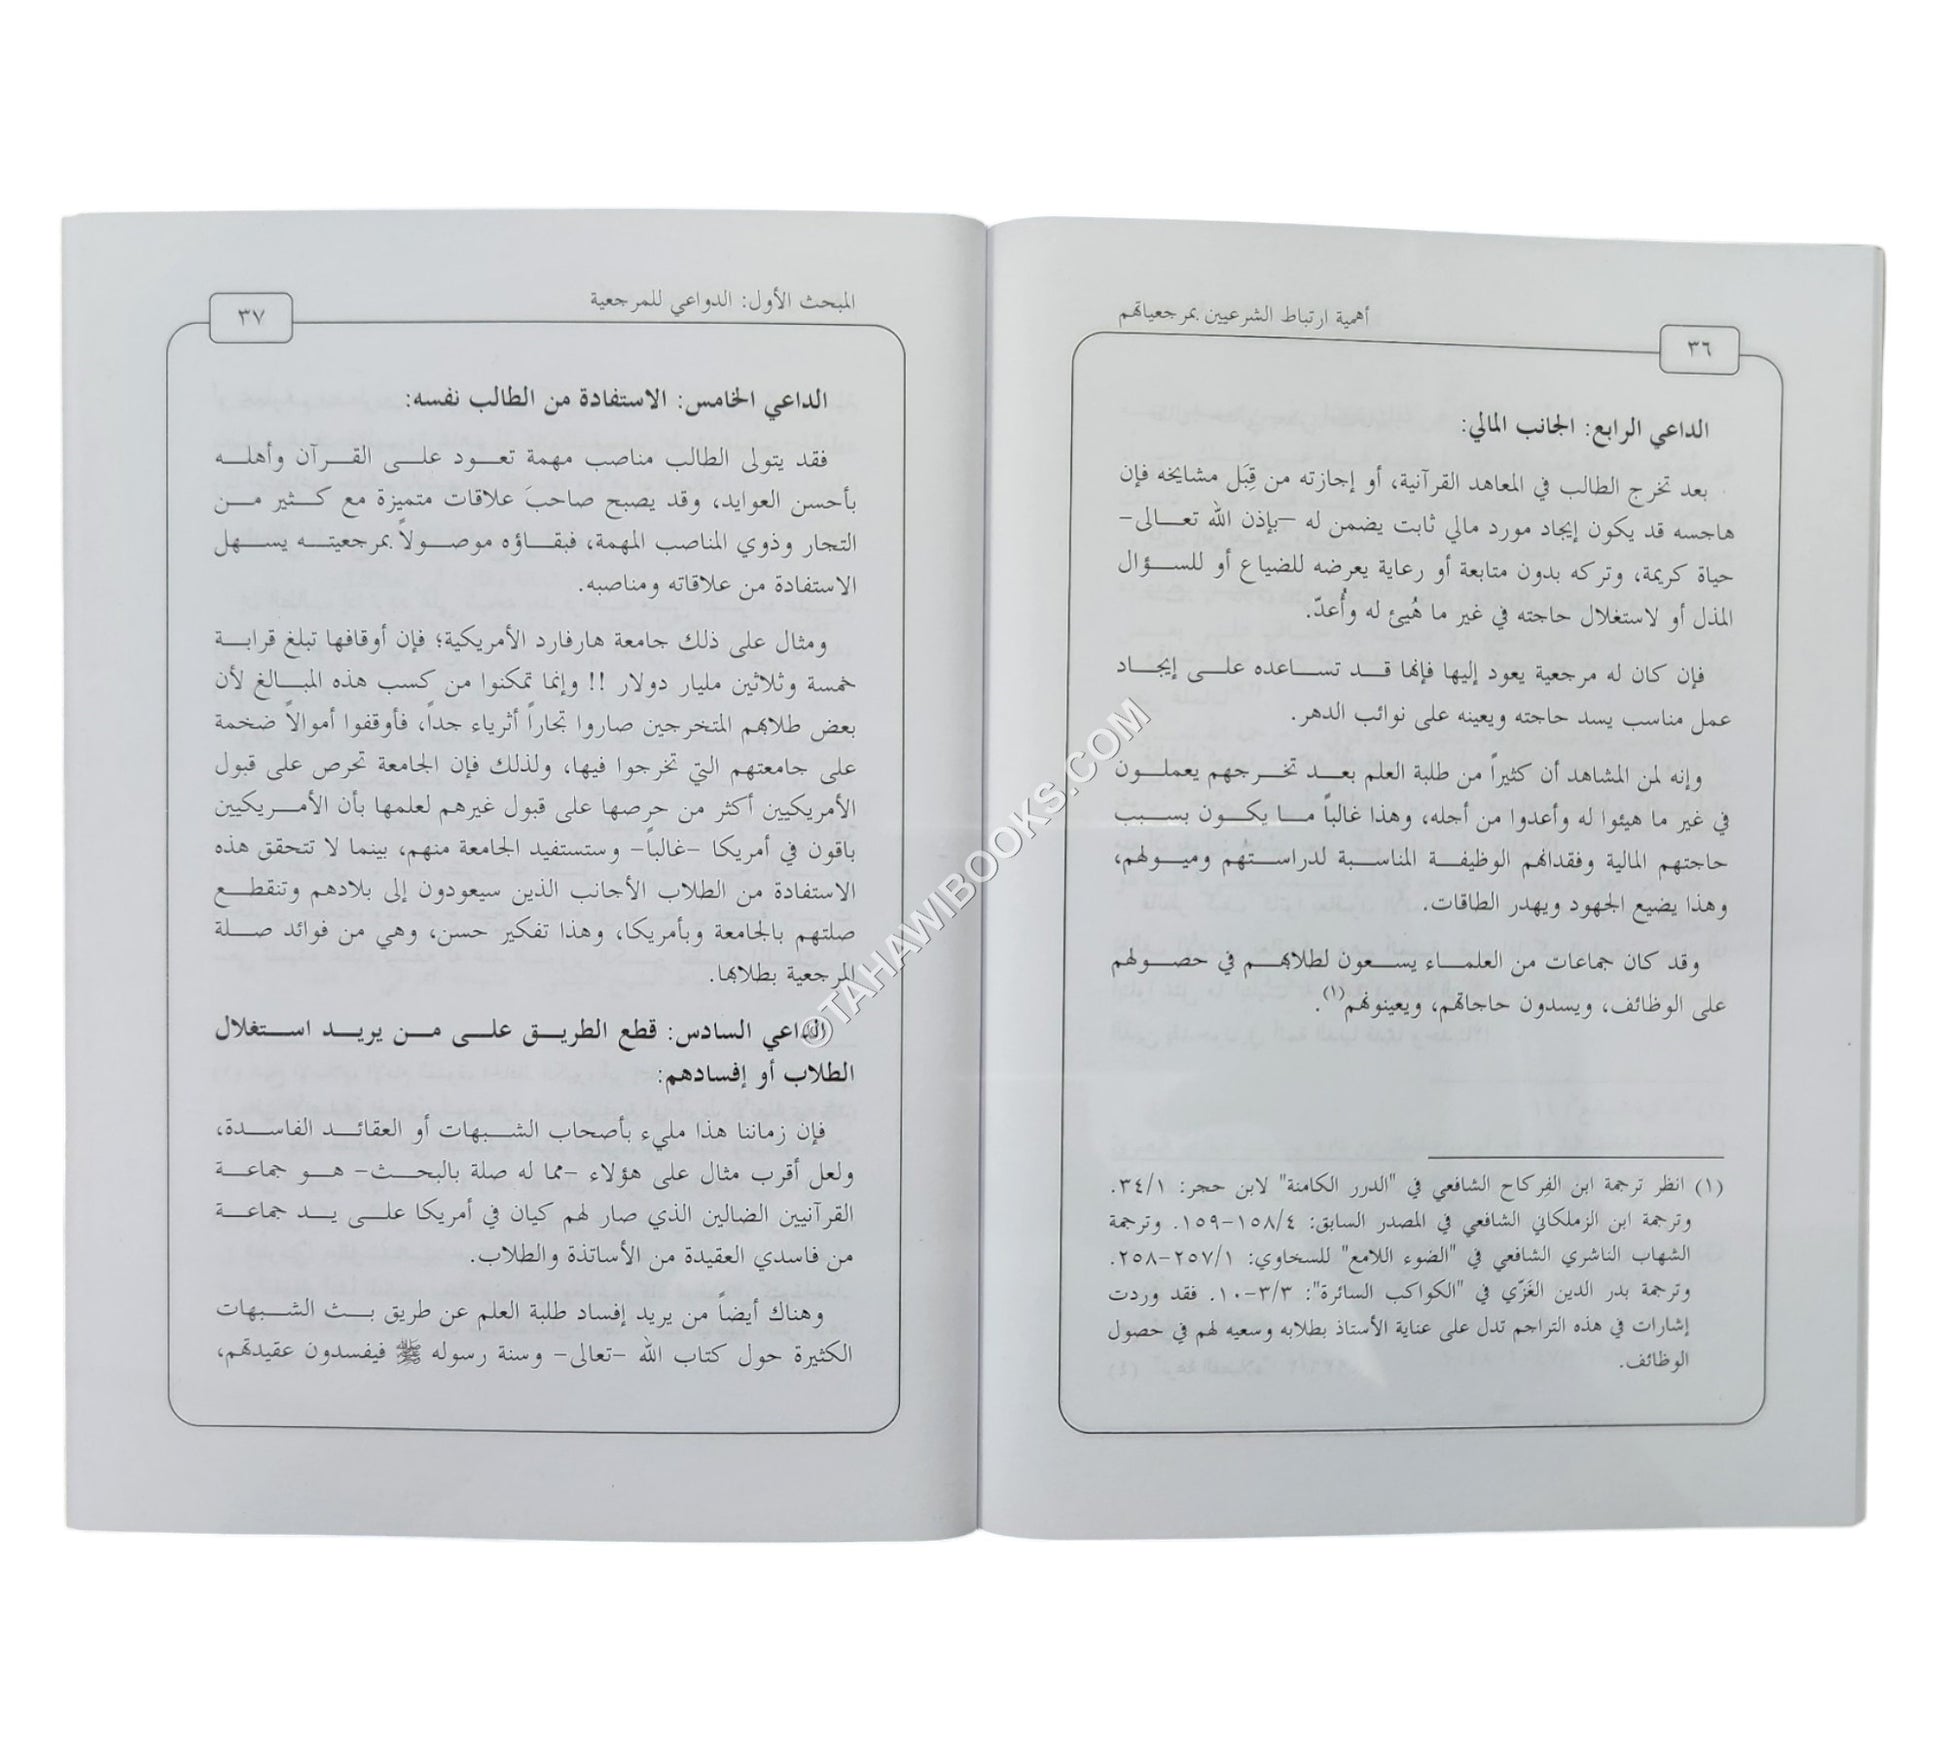 أهمية ارتباط الشرعيين بمرجعياتهم
٣٦
الداعي الرابع: الجانب المالي:
بعد تخرج الطالب في المعاهد القرآنية، أو إجازته من قِبَل مشايخه فإن
هاجسه قد يكون إيجاد مورد مالي ثابت يضمن له –بإذن الله تعالى–
حياة كريمة، وتركه بدون متابعة أو رعاية يعرضه للضياع أو للسؤال
المذل أو لاستغلال حاجته في غير ما هُيئ له وأُعدّ.
فإن كان له مرجعية يعود إليها فإنها قد تساعده على إيجاد
عمل مناسب يسد حاجته ويعينه على نوائب الدهر.
وإنه لمن المشاهد أن كثيراً من طلبة العلم بعد تخرجهم يعملون
في غير ما هيئوا له وأعدوا من أجله، وهذا غالباً ما يكون بسبب
حاجتهم المالية وفقدانهم الوظيفة المناسبة لدراستهم وميولهم،
وهذا يضيع الجهود ويهدر الطاقات.
وقد كان جماعات من العلماء يسعون لطلابهم في حصولهم
على الوظائف، ويسدون حاجاتهم، ويعينونهم(١).
(١) انظر ترجمة ابن الفِركاح الشافعي في "الدرر الكامنة" لابن حجر: ٣٤/١.
وترجمة ابن الزملكاني الشافعي في المصدر السابق: ١٥٨/٤–١٥٩. وترجمة
الشهاب الناشري الشافعي في "الضوء اللامع" للسخاوي: ٢٥٧/١–٢٥٨.
وترجمة بدر الدين الغَزّي في "الكواكب السائرة": ٣/٣–١٠. فقد وردت
إشارات في هذه التراجم تدل على عناية الأستاذ بطلابه وسعيه لهم في حصول
الوظائف.
المبحث الأول: الدواعي للمرجعية
٣٧
الداعي الخامس: الاستفادة من الطالب نفسه:
فقد يتولى الطالب مناصب مهمة تعود على القرآن وأهله
بأحسن العوايد، وقد يصبح صاحبَ علاقات متميزة مع كثير من
التجار وذوي المناصب المهمة، فبقاؤه موصولاً بمرجعيته يسهل
الاستفادة من علاقاته ومناصبه.
ومثال على ذلك جامعة هارفارد الأمريكية؛ فإن أوقافها تبلغ قرابة
خمسة وثلاثين مليار دولار !! وإنما تمكنوا من كسب هذه المبالغ لأن
بعض طلابهم المتخرجين صاروا تجاراً أثرياء جداً، فأوقفوا أموالاً ضخمة
على جامعتهم التي تخرجوا فيها، ولذلك فإن الجامعة تحرص على قبول
الأمريكيين أكثر من حرصها على قبول غيرهم لعلمها بأن الأمريكيين
باقون في أمريكا –غالباً– وستستفيد الجامعة منهم، بينما لا تتحقق هذه
الاستفادة من الطلاب الأجانب الذين سيعودون إلى بلادهم وتنقطع
صلتهم بالجامعة وبأمريكا، وهذا تفكير حسن، وهي من فوائد صلة
المرجعية بطلابها.
الداعي السادس: قطع الطريق على من يريد استغلال
الطلاب أو إفسادهم:
فإن زماننا هذا مليء بأصحاب الشبهات أو العقائد الفاسدة،
ولعل أقرب مثال على هؤلاء –مما له صلة بالبحث– هو جماعة
القرآنيين الضالين الذي صار لهم كيان في أمريكا على يد جماعة
من فاسدي العقيدة من الأساتذة والطلاب.
وهناك أيضاً من يريد إفساد طلبة العلم عن طريق بث الشبهات
الكثيرة حول كتاب الله –تعالى– وسنة رسوله ﷺ فيفسدون عقيدتهم،
©TAHAWIBOOKS.COM